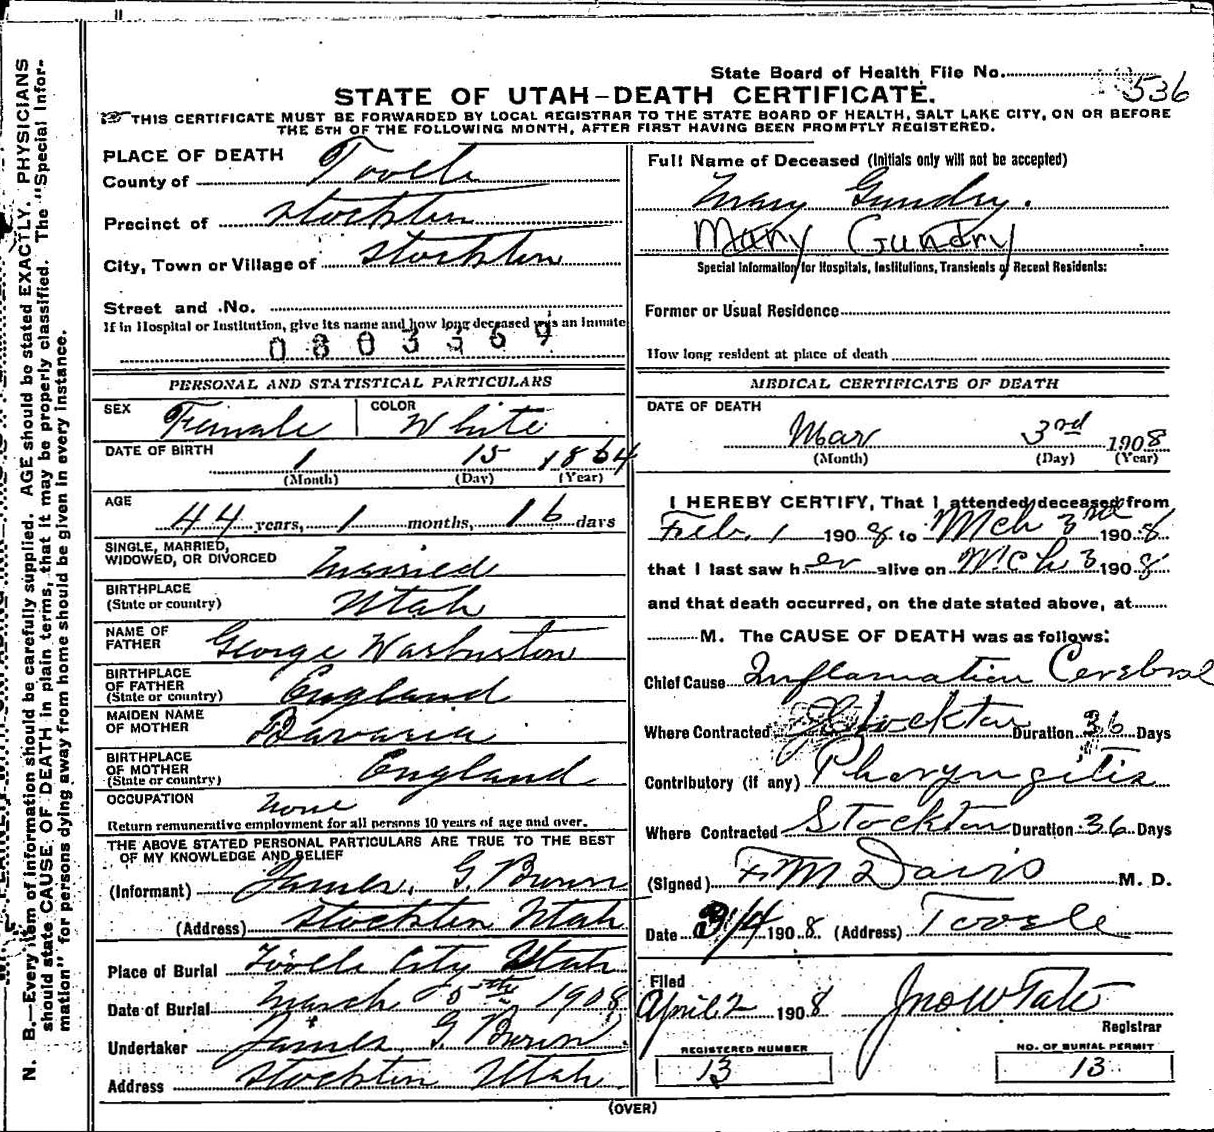 State Board of Health File No. 536
STATE OF UTAH—DEATH CERTIFICATE.
THIS CERTIFICATE MUST BE FORWARDED BY LOCAL REGISTRAR TO THE STATE BOARD OF HEALTH, SALT LAKE CITY, ON OR BEFORE
THE 5TH OF THE FOLLOWING MONTH, AFTER FIRST HAVING BEEN PROMPTLY REGISTERED.
PLACE OF DEATH
County of Tooele
Precinct of Stockton
City, Town or Village of Stockton
Street and No.
If in Hospital or Institution, give its name and how long deceased was an inmate
0803569
PERSONAL AND STATISTICAL PARTICULARS
SEX Female COLOR White
DATE OF BIRTH 1 15 1864
(Month) (Day) (Year)
AGE 44 years, 1 months, 16 days
SINGLE, MARRIED,
WIDOWED, OR DIVORCED Married
BIRTHPLACE
(State or country) Utah
NAME OF
FATHER George Warburton
BIRTHPLACE
OF FATHER
(State or country) England
MAIDEN NAME
OF MOTHER Bavaria
BIRTHPLACE
OF MOTHER
(State or country) England
OCCUPATION None
Return remunerative employment for all persons 10 years of age and over.
THE ABOVE STATED PERSONAL PARTICULARS ARE TRUE TO THE BEST
OF MY KNOWLEDGE AND BELIEF
(Informant) James G. Brown
(Address) Stockton Utah
Place of Burial Tooele City Utah
Date of Burial March 5th 1908
Undertaker James G. Brown
Address Stockton Utah
Full Name of Deceased (Initials only will not be accepted)
Mary Gundry.
Mary Gundry
Special Information for Hospitals, Institutions, Transients of Recent Residents:
Former or Usual Residence
How long resident at place of death
MEDICAL CERTIFICATE OF DEATH
DATE OF DEATH
Mar 3rd 1908
(Month) (Day) (Year)
I HEREBY CERTIFY, That I attended deceased from
Feb. 1 1908 to Mch 3rd 1908
that I last saw her alive on Mch 3 1908
and that death occurred, on the date stated above, at
M. The CAUSE OF DEATH was as follows:
Chief Cause Inflamation Cerebral
Where Contracted Stockton Duration 36 Days
Contributory (if any) Pharyngitis
Where Contracted Stockton Duration 36 Days
(Signed) F. M Davis M. D.
Date 3/4 1908 (Address) Tooele
Filed
April 2 1908 Jno W Tate
Registrar
REGISTERED NUMBER
13
NO. OF BURIAL PERMIT
13
(OVER)
N. B.—Every item of information should be carefully supplied. AGE should be stated EXACTLY. PHYSICIANS
should state CAUSE OF DEATH in plain terms, that it may be properly classified. The "Special Infor-
mation" for persons dying away from home should be given in every instance.